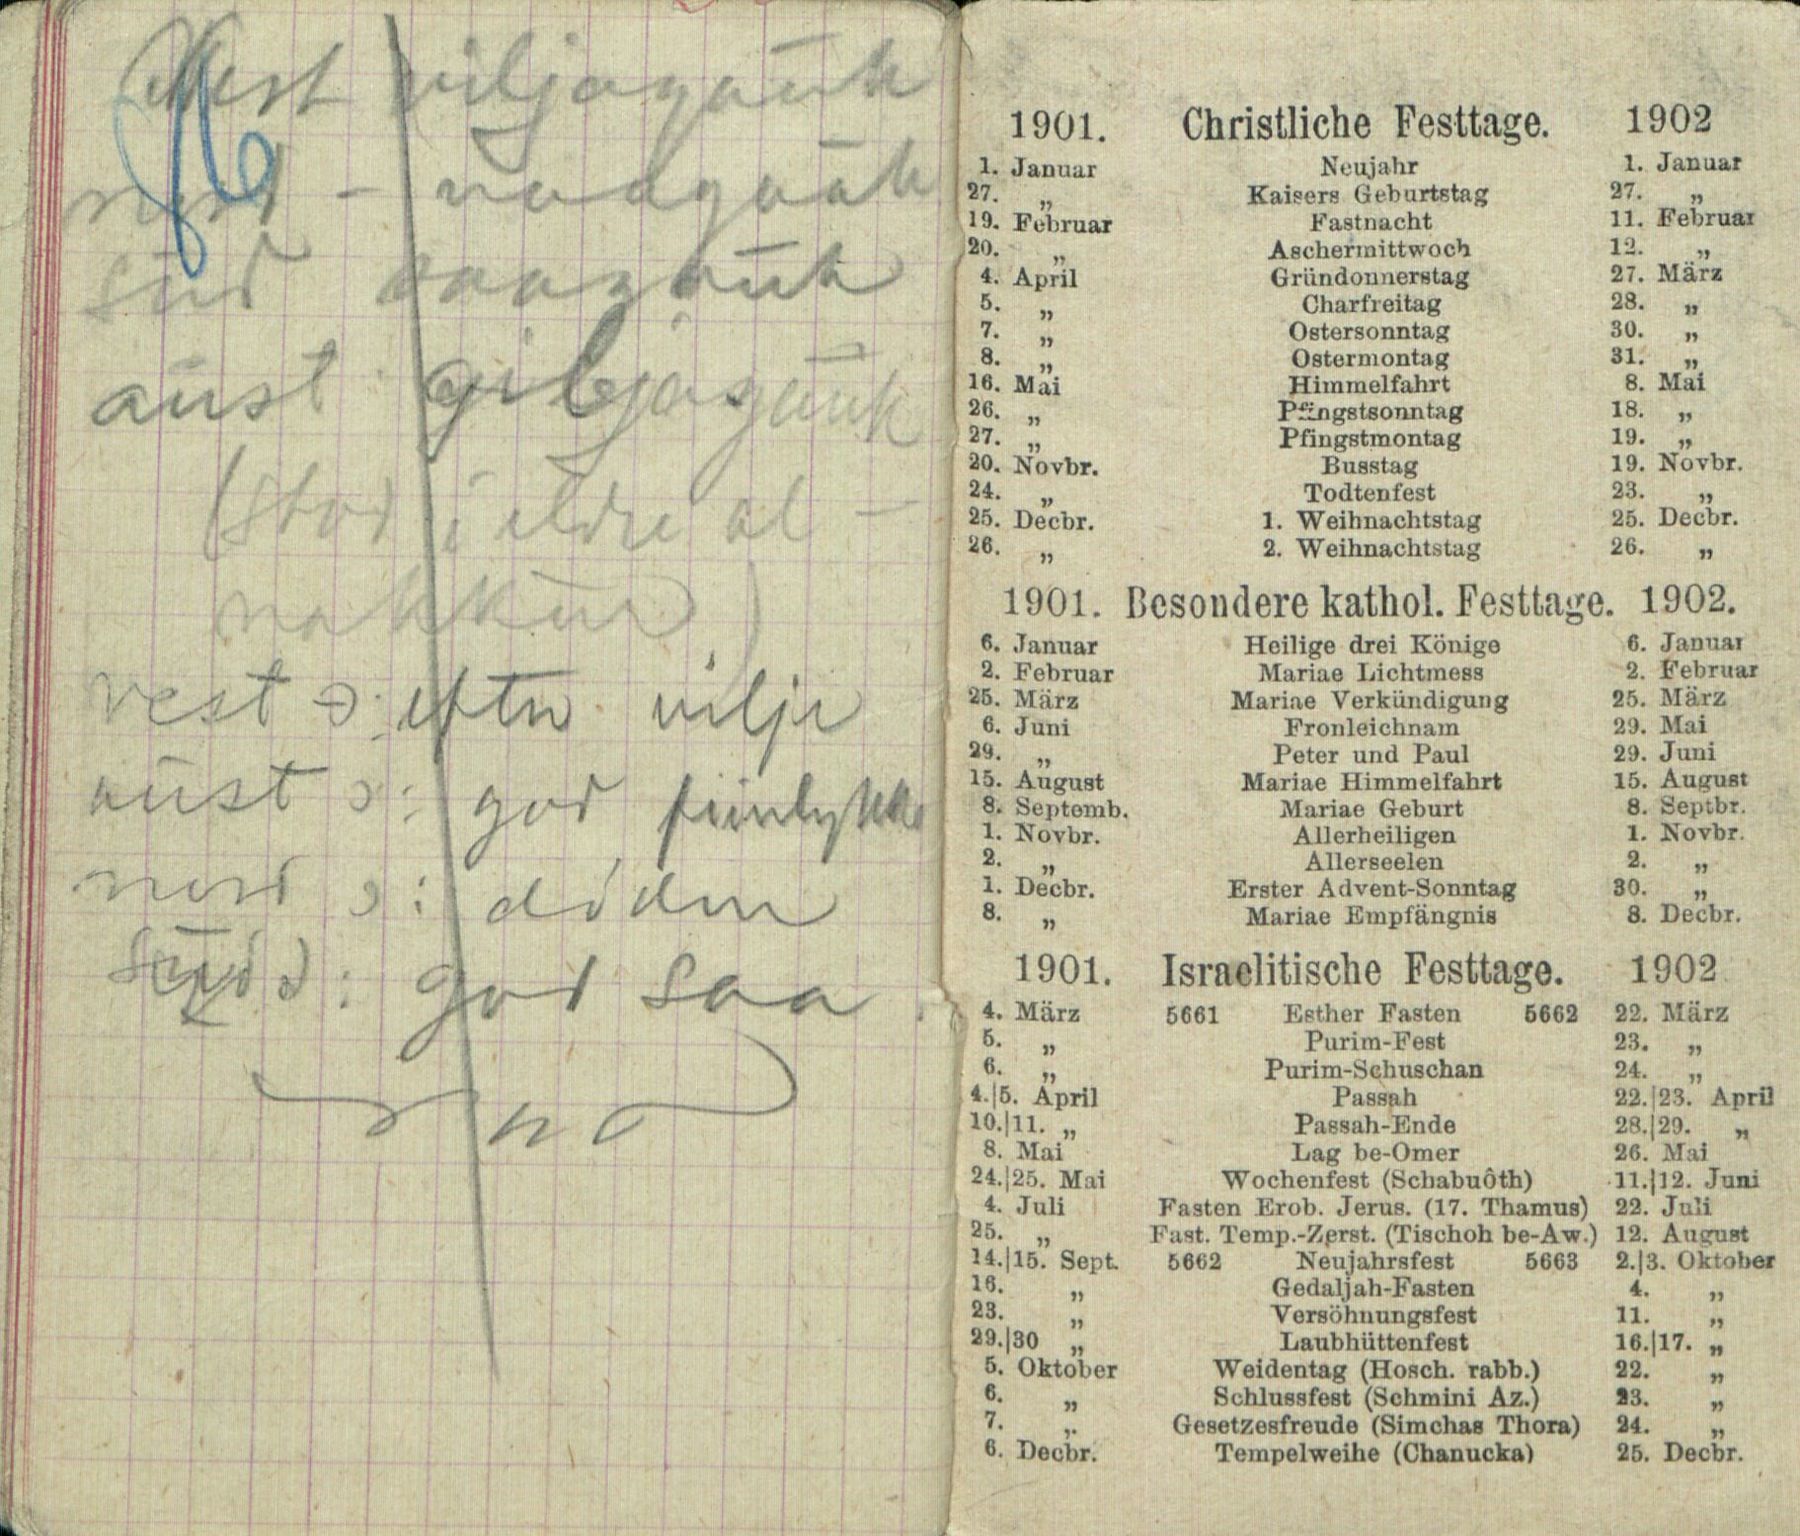 Vest viljagauk
nord - naagauk
süd saagauk
aust giljagauk
(stod i eldre al-
nakkur)
vest ɔ: efter vilje
aust ɔ: god
nord ɔ: döden
süd ɔ: god saa
1901. Christliche Festtage. 1902
1. Januar Neujahr 1. Januar
27. „ Kaisers Geburtstag 27. „
19. Februar Fastnacht 11. Februar
20. „ Aschermittwoch 12. „
4. April Gründonnerstag 27. März
5. „ Charfreitag 28. „
7. „ Ostersonntag 30. „
8. „ Ostermontag 31. „
16. Mai Himmelfahrt 8. Mai
26. „ Pfingstsonntag 18. „
27. „ Pfingstmontag 19. „
20. Novbr. Busstag 19. Novbr.
24. „ Todtenfest 23. „
25. Decbr. 1. Weihnachtstag 25. Decbr.
26. „ 2. Weihnachtstag 26. „
1901. Besondere kathol. Festtage. 1902.
6. Januar Heilige drei Könige 6. Januar
2. Februar Mariae Lichtmess 2. Februar
25. März Mariae Verkündigung 25. März
6. Juni Fronleichnam 29. Mai
29. „ Peter und Paul 29. Juni
15. August Mariae Himmelfahrt 15. August
8. Septemb. Mariae Geburt 8. Septbr.
1. Novbr. Allerheiligen 1. Novbr.
2. „ Allerseelen 2. „
1. Decbr. Erster Advent-Sonntag 30. „
8. „ Mariae Empfängnis 8. Decbr.
1901. Israelitische Festtage. 1902
4. März 5661 Esther Fasten 5662 22. März
5. „ Purim-Fest 23. „
6. „ Purim-Schuschan 24. „
4.|5. April Passah 22.|23. April
10.|11. „ Passah-Ende 28.|29. „
8. Mai Lag be-Omer 26. Mai
24.|25. Mai Wochenfest (Schabuôth) 11.|12. Juni
4. Juli Fasten Erob. Jerus. (17. Thamus) 22. Juli
25. „ Fast. Temp.-Zerst. (Tischoh be-Aw.) 12. August
14.|15. Sept. 5662 Neujahrsfest 5663 2.|3. Oktober
16. „ Gedaljah-Fasten 4. „
23. „ Versöhnungsfest 11. „
29.|30 „ Laubhüttenfest 16.|17. „
5. Oktober Weidentag (Hosch. rabb.) 22. „
6. „ Schlussfest (Schmini Az.) 23. „
7. „ Gesetzesfreude (Simchas Thora) 24. „
6. Decbr. Tempelweihe (Chanucka) 25. Decbr.